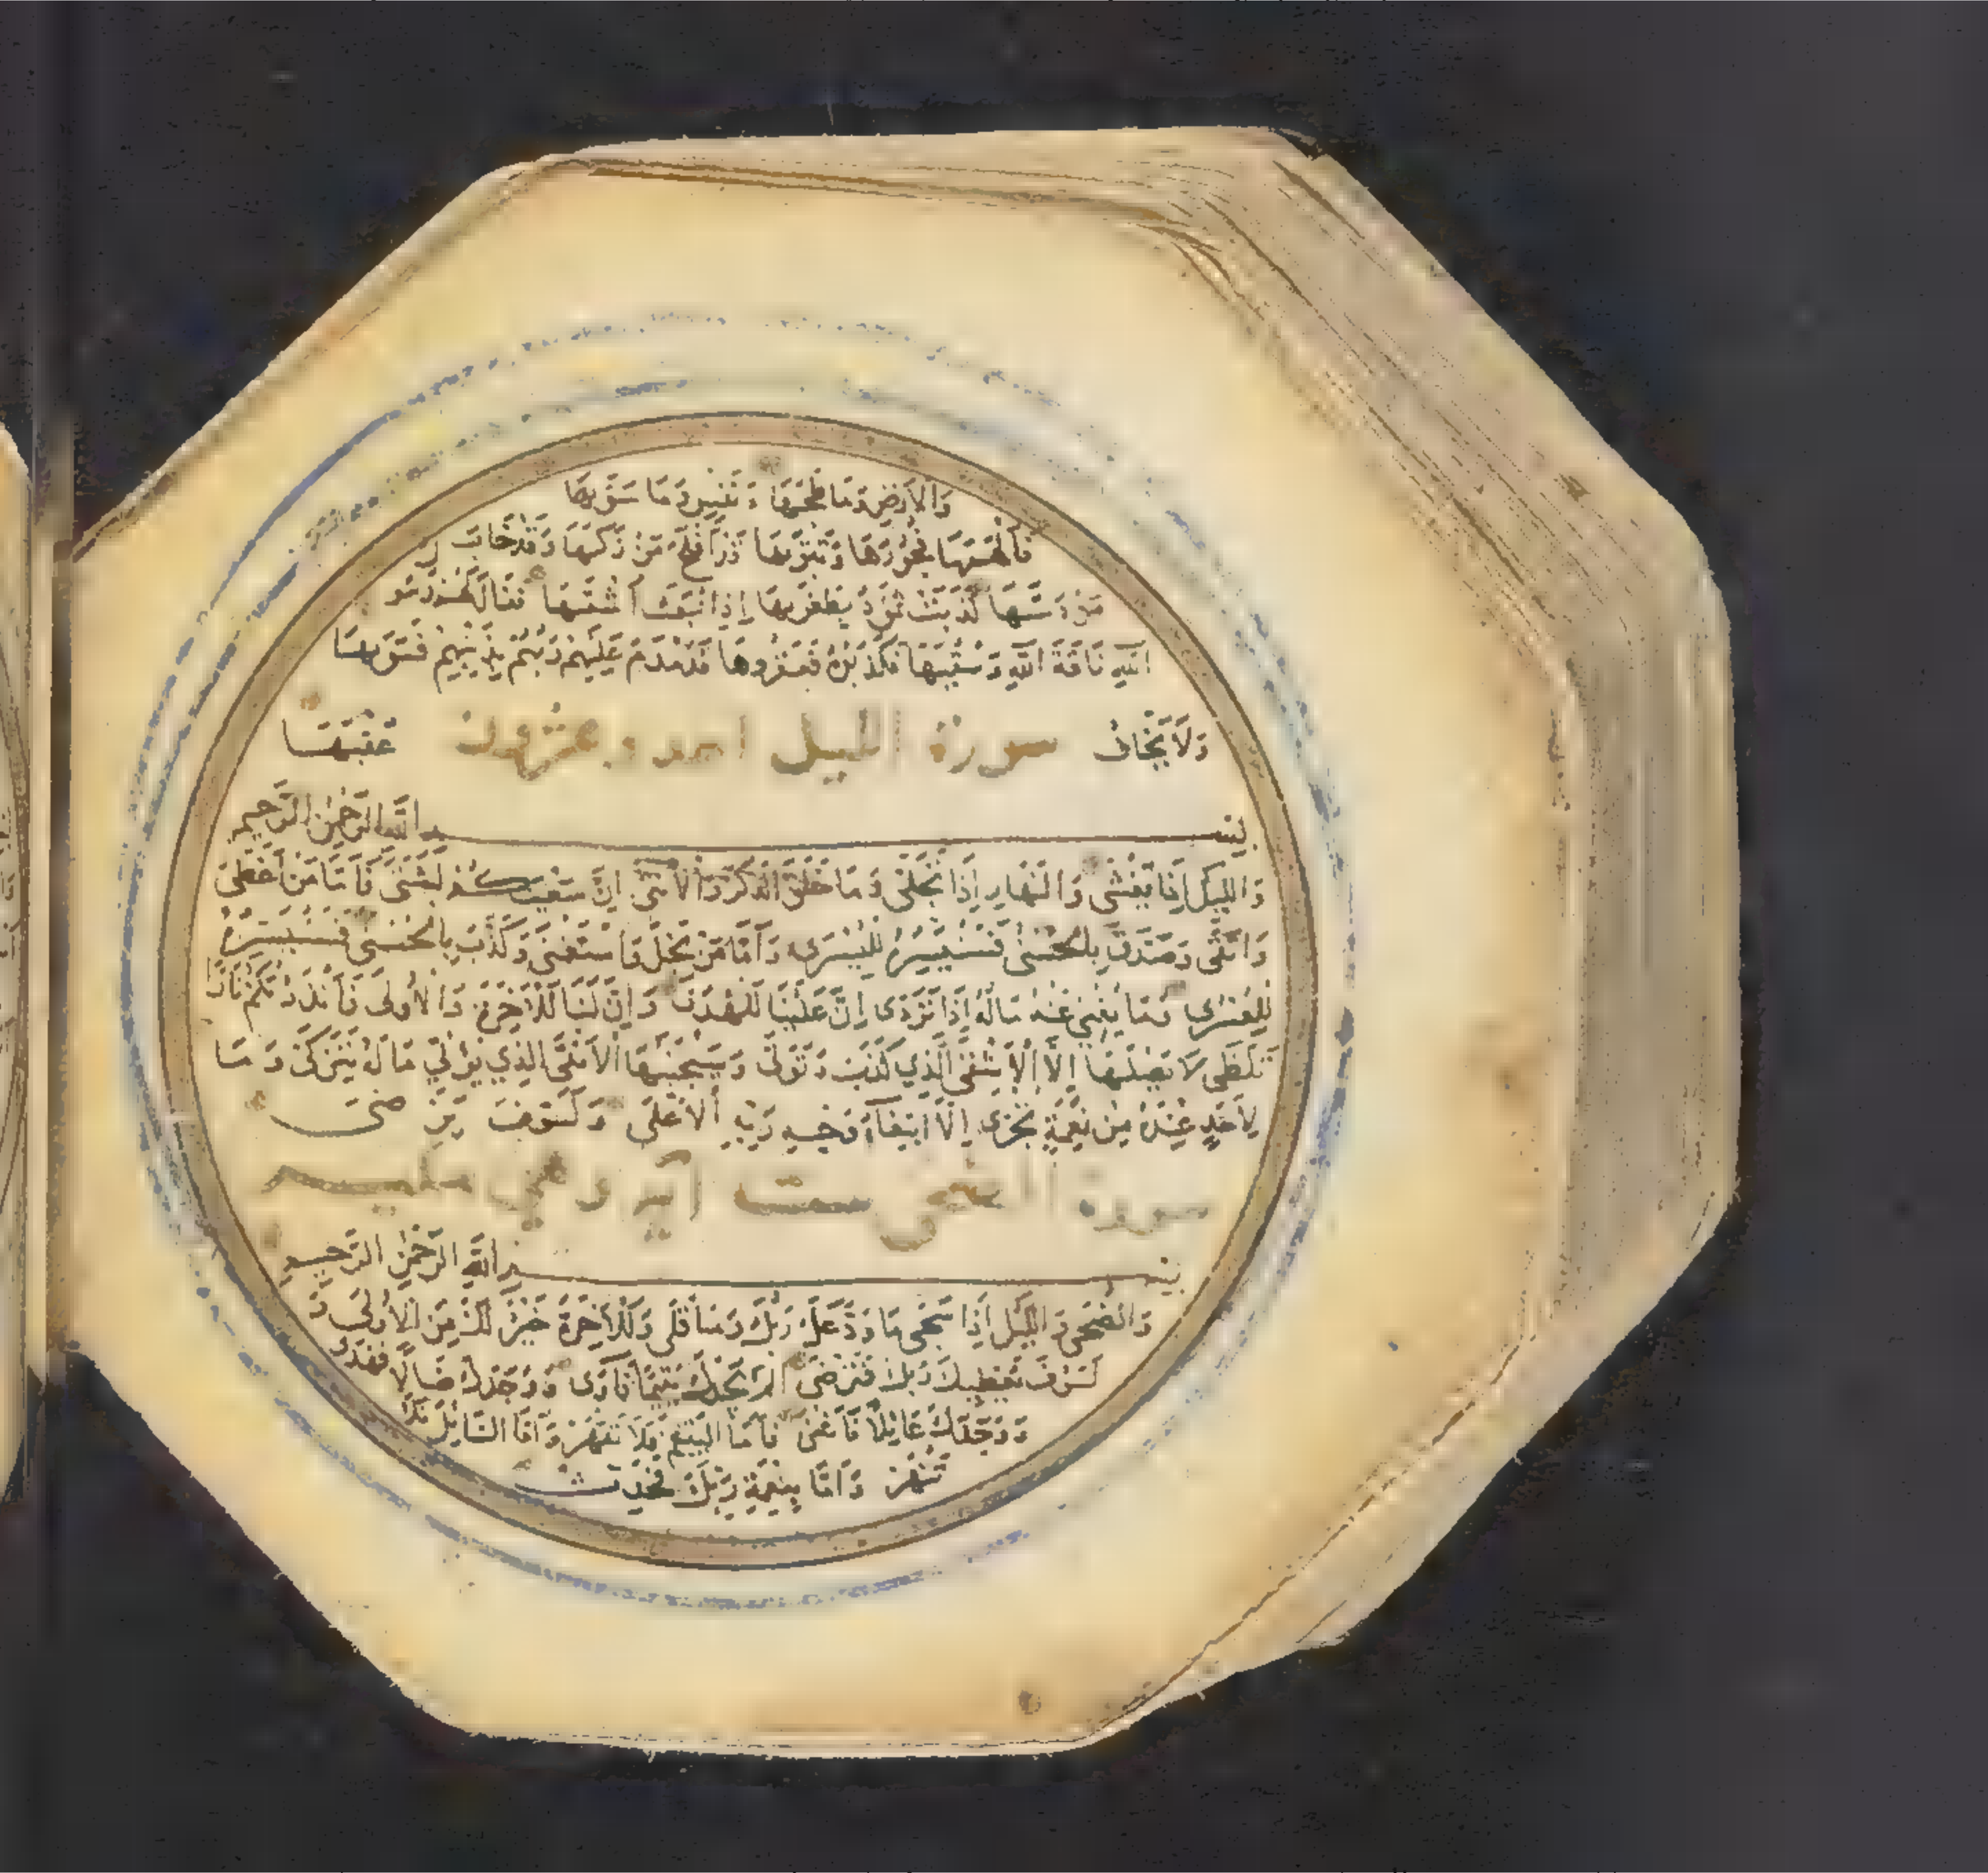 وَالْأَرْضِ وَمَا طَحَىٰهَا وَنَفْسٍ وَمَا سَوَّىٰهَا
فَأَلْهَمَهَا فُجُورَهَا وَتَقْوَىٰهَا قَدْ أَفْلَحَ مَنْ زَكَّىٰهَا وَقَدْ خَابَ
مَنْ دَسَّىٰهَا كَذَّبَتْ ثَمُودُ بِطَغْوَىٰهَا إِذِ انْبَعَثَ أَشْقَىٰهَا فَقَالَ لَهُمْ رَسُو
اللَّهِ نَاقَةَ اللَّهِ وَسُقْيَىٰهَا فَكَذَّبُوهُ فَعَقَرُوهَا فَدَمْدَمَ عَلَيْهِمْ رَبُّهُمْ بِذَنْبِهِمْ فَسَوَّىٰهَا
وَلَا يَخَافُ عُقْبَىٰهَا
سورة الليل احد وعشرون
بِسْمِ اللَّهِ الرَّحْمٰنِ الرَّحِيمِ
وَاللَّيْلِ إِذَا يَغْشَى وَالنَّهَارِ إِذَا تَجَلَّى وَمَا خَلَقَ الذَّكَرَ وَالْأُنْثَى إِنَّ سَعْيَكُمْ لَشَتَّى فَأَمَّا مَنْ أَعْطَى
وَاتَّقَى وَصَدَّقَ بِالْحُسْنَى فَسَنُيَسِّرُهُ لِلْيُسْرَى وَأَمَّا مَنْ بَخِلَ وَاسْتَغْنَى وَكَذَّبَ بِالْحُسْنَى فَسَنُيَسِّرُهُ
لِلْعُسْرَى وَمَا يُغْنِي عَنْهُ مَالُهُ إِذَا تَرَدَّى إِنَّ عَلَيْنَا لَلْهُدَى وَإِنَّ لَنَا لَلْآخِرَةَ وَالْأُولَى فَأَنْذَرْتُكُمْ نَارًا
تَلَظَّى لَا يَصْلَىٰهَا إِلَّا الْأَشْقَى الَّذِي كَذَّبَ وَتَوَلَّى وَسَيُجَنَّبُهَا الْأَتْقَى الَّذِي يُؤْتِي مَالَهُ يَتَزَكَّى وَمَا
لِأَحَدٍ عِنْدَهُ مِنْ نِعْمَةٍ تُجْزَى إِلَّا ابْتِغَاءَ وَجْهِ رَبِّهِ الْأَعْلَى وَلَسَوْفَ يَرْضَى
سورة الضحى ست
بِسْمِ اللَّهِ الرَّحْمٰنِ الرَّحِيمِ
وَالضُّحَى وَاللَّيْلِ إِذَا سَجَى مَا وَدَّعَكَ رَبُّكَ وَمَا قَلَى وَلَلْآخِرَةُ خَيْرٌ لَكَ مِنَ الْأُولَى وَ
لَسَوْفَ يُعْطِيكَ رَبُّكَ فَتَرْضَى أَلَمْ يَجِدْكَ يَتِيمًا فَآوَى وَوَجَدَكَ ضَالًّا فَهَدَى
وَوَجَدَكَ عَائِلًا فَأَغْنَى فَأَمَّا الْيَتِيمَ فَلَا تَقْهَرْ وَأَمَّا السَّائِلَ فَلَا
تَنْهَرْ وَأَمَّا بِنِعْمَةِ رَبِّكَ فَحَدِّثْ